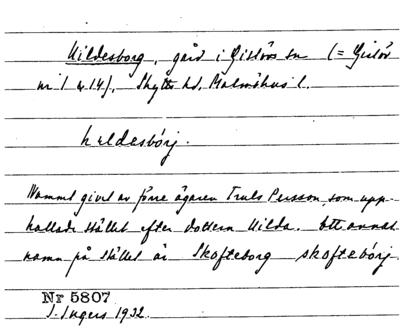 Hildesborg, gård i Gislövs sn (= Gislöv
nr 1 & 14), Skytts hd, Malmöhus l.
hildesbórj.
Namnet givet av förre ägaren Truls Persson, som upp-
kallade stället efter dottern Hilda. Ett annat
namn på stället är Skofteborg skoftebórj.
Nr 5807
I. Ingers 1932.